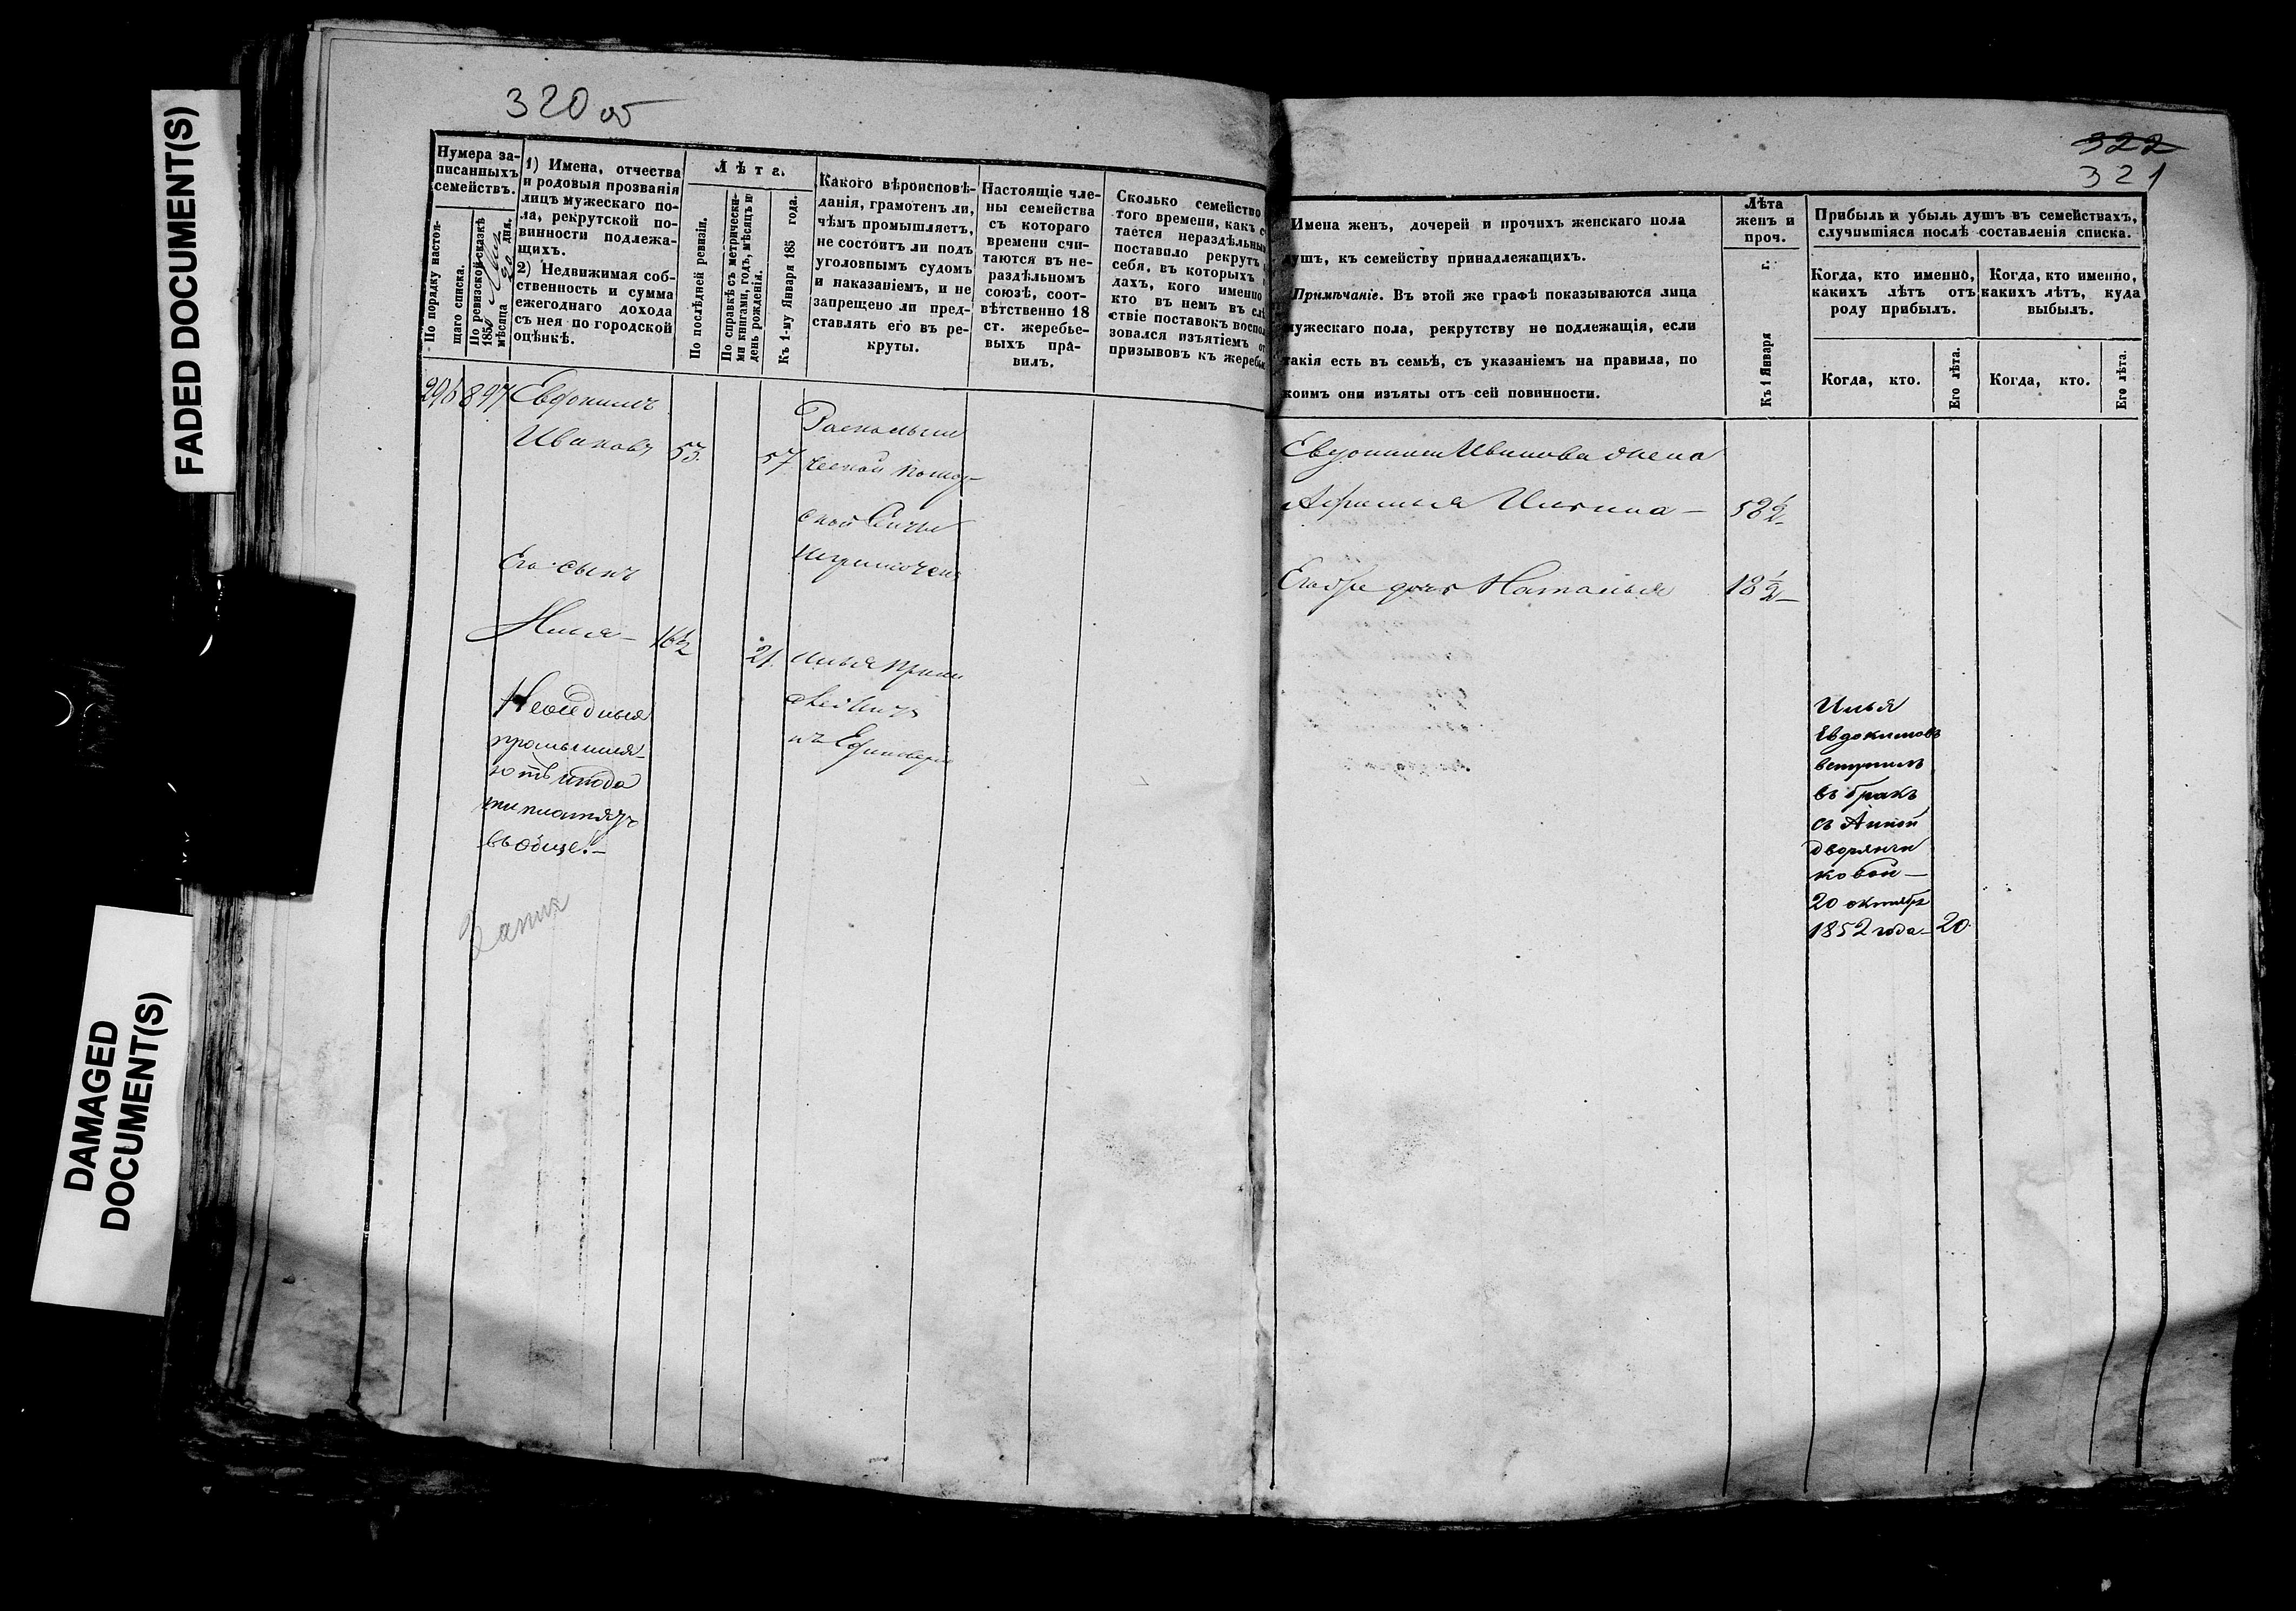 FADED DOCUMENT(S)
DAMAGED
DOCUMENT(S)
320 об
Нумера за-
писанныхъ
семействъ.
По порядку настоя-
щаго списка.
По ревизской сказкѣ
185
мѣсяца 20 дня.
1) Имена, отчества
и родовыя прозванія
лицъ мужескаго по-
ла, рекрутской по-
винности подлежа-
щихъ.
2) Недвижимая соб-
ственность и сумма
ежегоднаго дохода
съ нея по городской
оцѣнкѣ.
Лѣта.
По послѣдней ревизіи.
По справкѣ съ метрически-
ми книгами, годъ, мѣсяцъ и
день рожденія.
Къ 1-му Января 185 года.
Какого вѣроисповѣ-
данія, грамотенъ ли,
чѣмъ промышляетъ,
не состоитъ ли подъ
уголовнымъ судомъ
и наказаніемъ, и не
запрещено ли пред-
ставлять его въ ре-
круты.
Настоящіе чле-
ны семейства
съ котораго
времени счи-
таются въ не-
раздѣльномъ
союзѣ, соот-
вѣтственно 18
ст. жеребье-
выхъ пра-
вилъ.
Сколько семейство
того времени, какъ с
тается нераздѣльным
поставило рекрутъ
себя, въ которыхъ
дахъ, кого именно
кто въ немъ въ слѣ
ствіе поставокъ воспол
зовался изъятіемъ от
призывовъ къ жеребью
897 Евдокимъ
Ивановъ 53. 57
Раскольни
ческой помор
ской секты
неграмотенъ
Его сынъ
Илья 16½ 21.
Илья
къ Единоверію
промышля-
ютъ
платятъ
вообще.
322
321
Имена женъ, дочерей и прочихъ женскаго пола
душъ, къ семейству принадлежащихъ.
Примѣчаніе. Въ этой же графѣ показываются лица
мужескаго пола, рекрутству не подлежащія, если
такія есть въ семьѣ, съ указаніемъ на правила, по
коимъ они изъяты отъ сей повинности.
Лѣта
женъ и
проч.
Къ 1 Января г.
Прибыль и убыль душъ въ семействахъ,
случившіяся послѣ составленія списка.
Когда, кто именно,
какихъ лѣтъ отъ
роду прибылъ.
Когда, кто именно,
какихъ лѣтъ, куда
выбылъ.
Когда, кто.
Его лѣта.
Когда, кто.
Его лѣта.
Евдокима Иванова жена
58½
дочь Наталья 18½
Илья
Евдокимовъ
вступилъ
въ бракъ
съ Анной
дворянчи
ковой —
20 октября
1852 года — 20